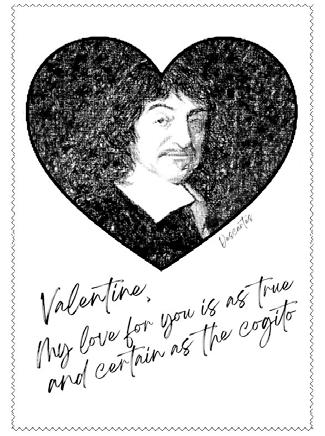 Descartes
Valentine,
My love for you is as true
and certain as the cogito